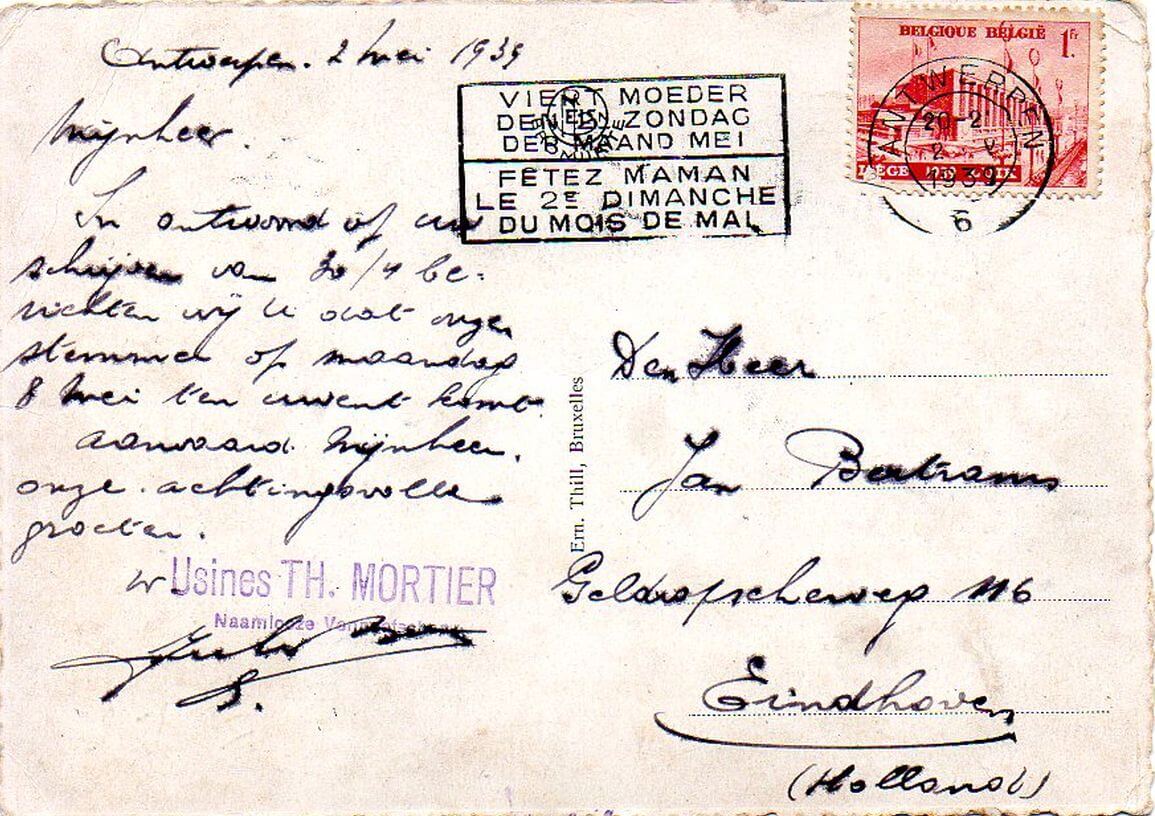 Antwerpen. 2 Mei 1939
Mijnheer.
In antwoord op uw
schrijven van 30/4 be-
richten wij U dat onzen
stemmer op maandag
8 Mei ten uwent komt.
Aanvaard Mijnheer.
onze achtingsvolle
groeten.
Usines TH. MORTIER
Naamlooze Vennootschap
VIERT MOEDER
DEN 2EN ZONDAG
DER MAAND MEI
FÊTEZ MAMAN
LE 2E DIMANCHE
DU MOIS DE MAI
BELGIQUE BELGIË 1Fr
LIÈGE
ANTWERPEN
20-2
2 V
1939
6
Ern. Thill, Bruxelles
Den Heer
Jan Bertrams
Geldropscheweg 116
Eindhoven
(Holland)